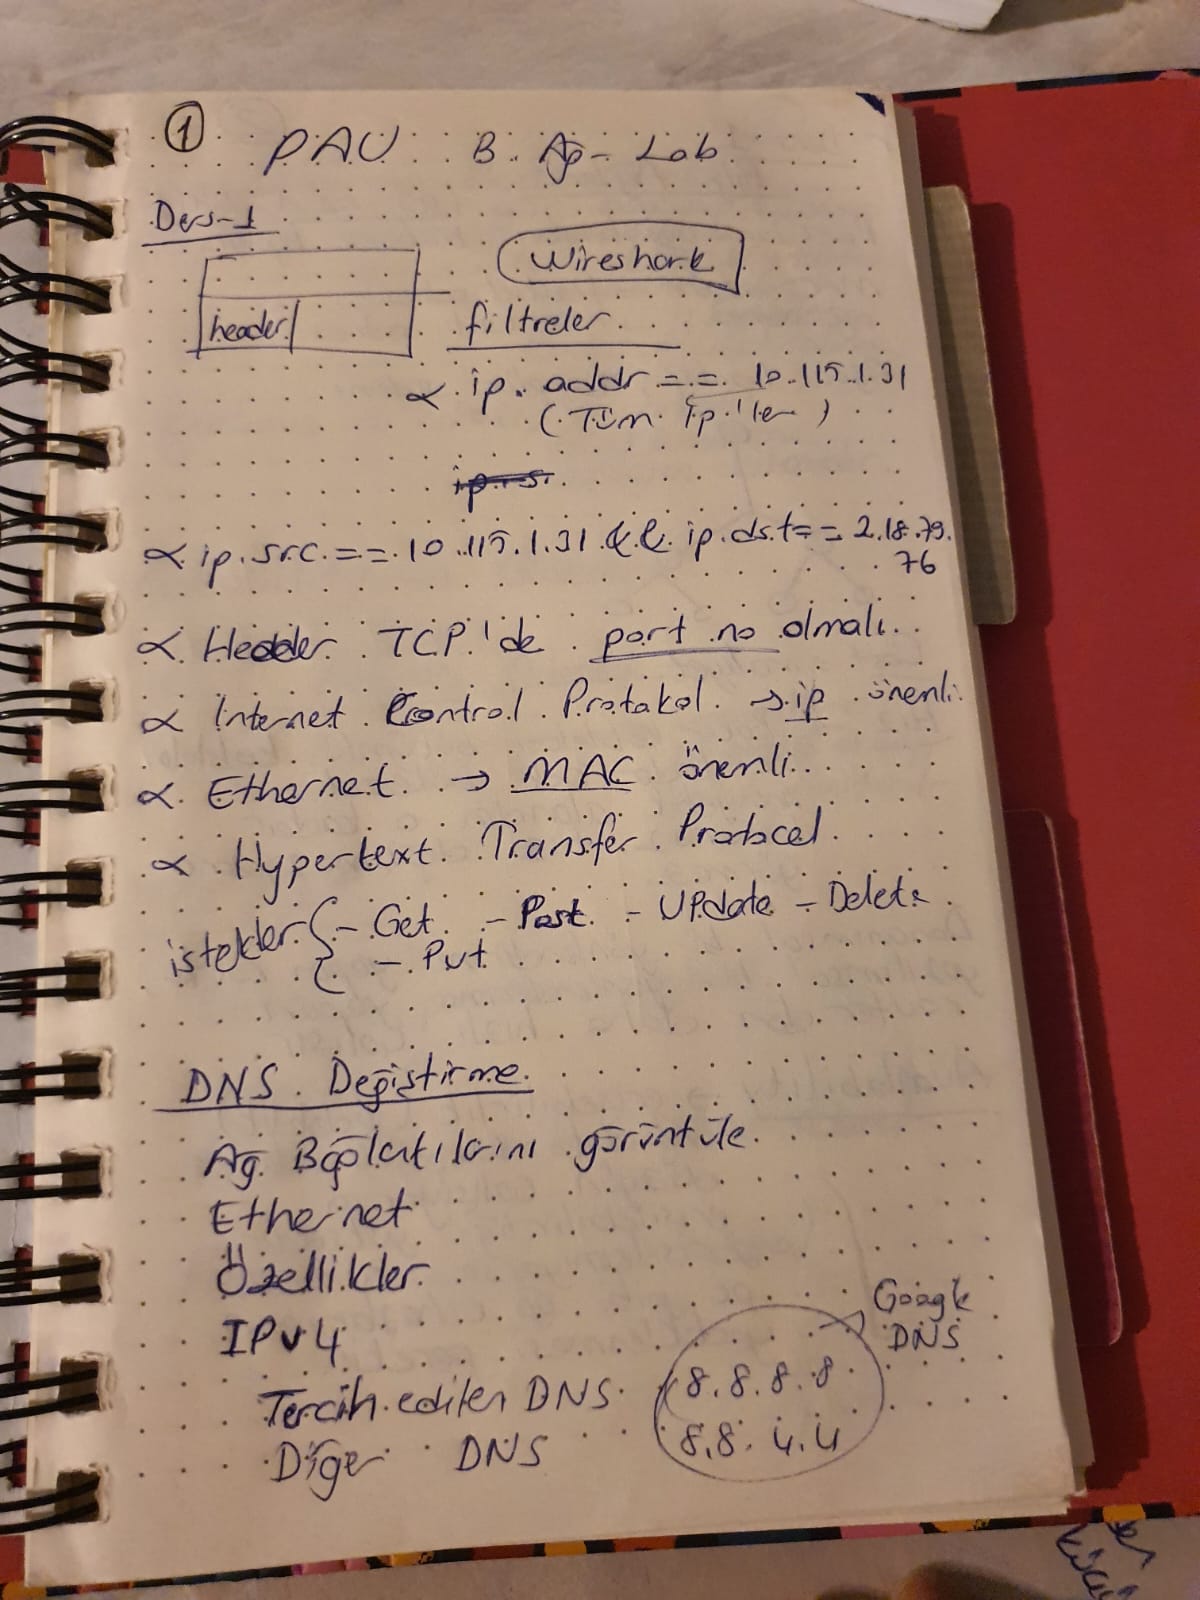 1
PAU B. Ağ-Lab
Ders-1
Wireshark
header
filtreler
∝ ip. addr == 10.115.1.31
(Tüm ip'ler)
∝ ip.src == 10.115.1.31 && ip.dst == 2.18.79.
76
∝ Header TCP'de port no olmalı.
∝ Internet Control Protokol → ip önemli.
∝ Ethernet → MAC önemli.
∝ Hypertext Transfer Protocol
istekler { - Get - Post - Update - Delete
- Put
DNS Değiştirme
Ağ Bağlantılarını görüntüle
Ethernet
Özellikler
IPv4
Google
DNS
Tercih edilen DNS 8.8.8.8
Diğer DNS 8.8.4.4